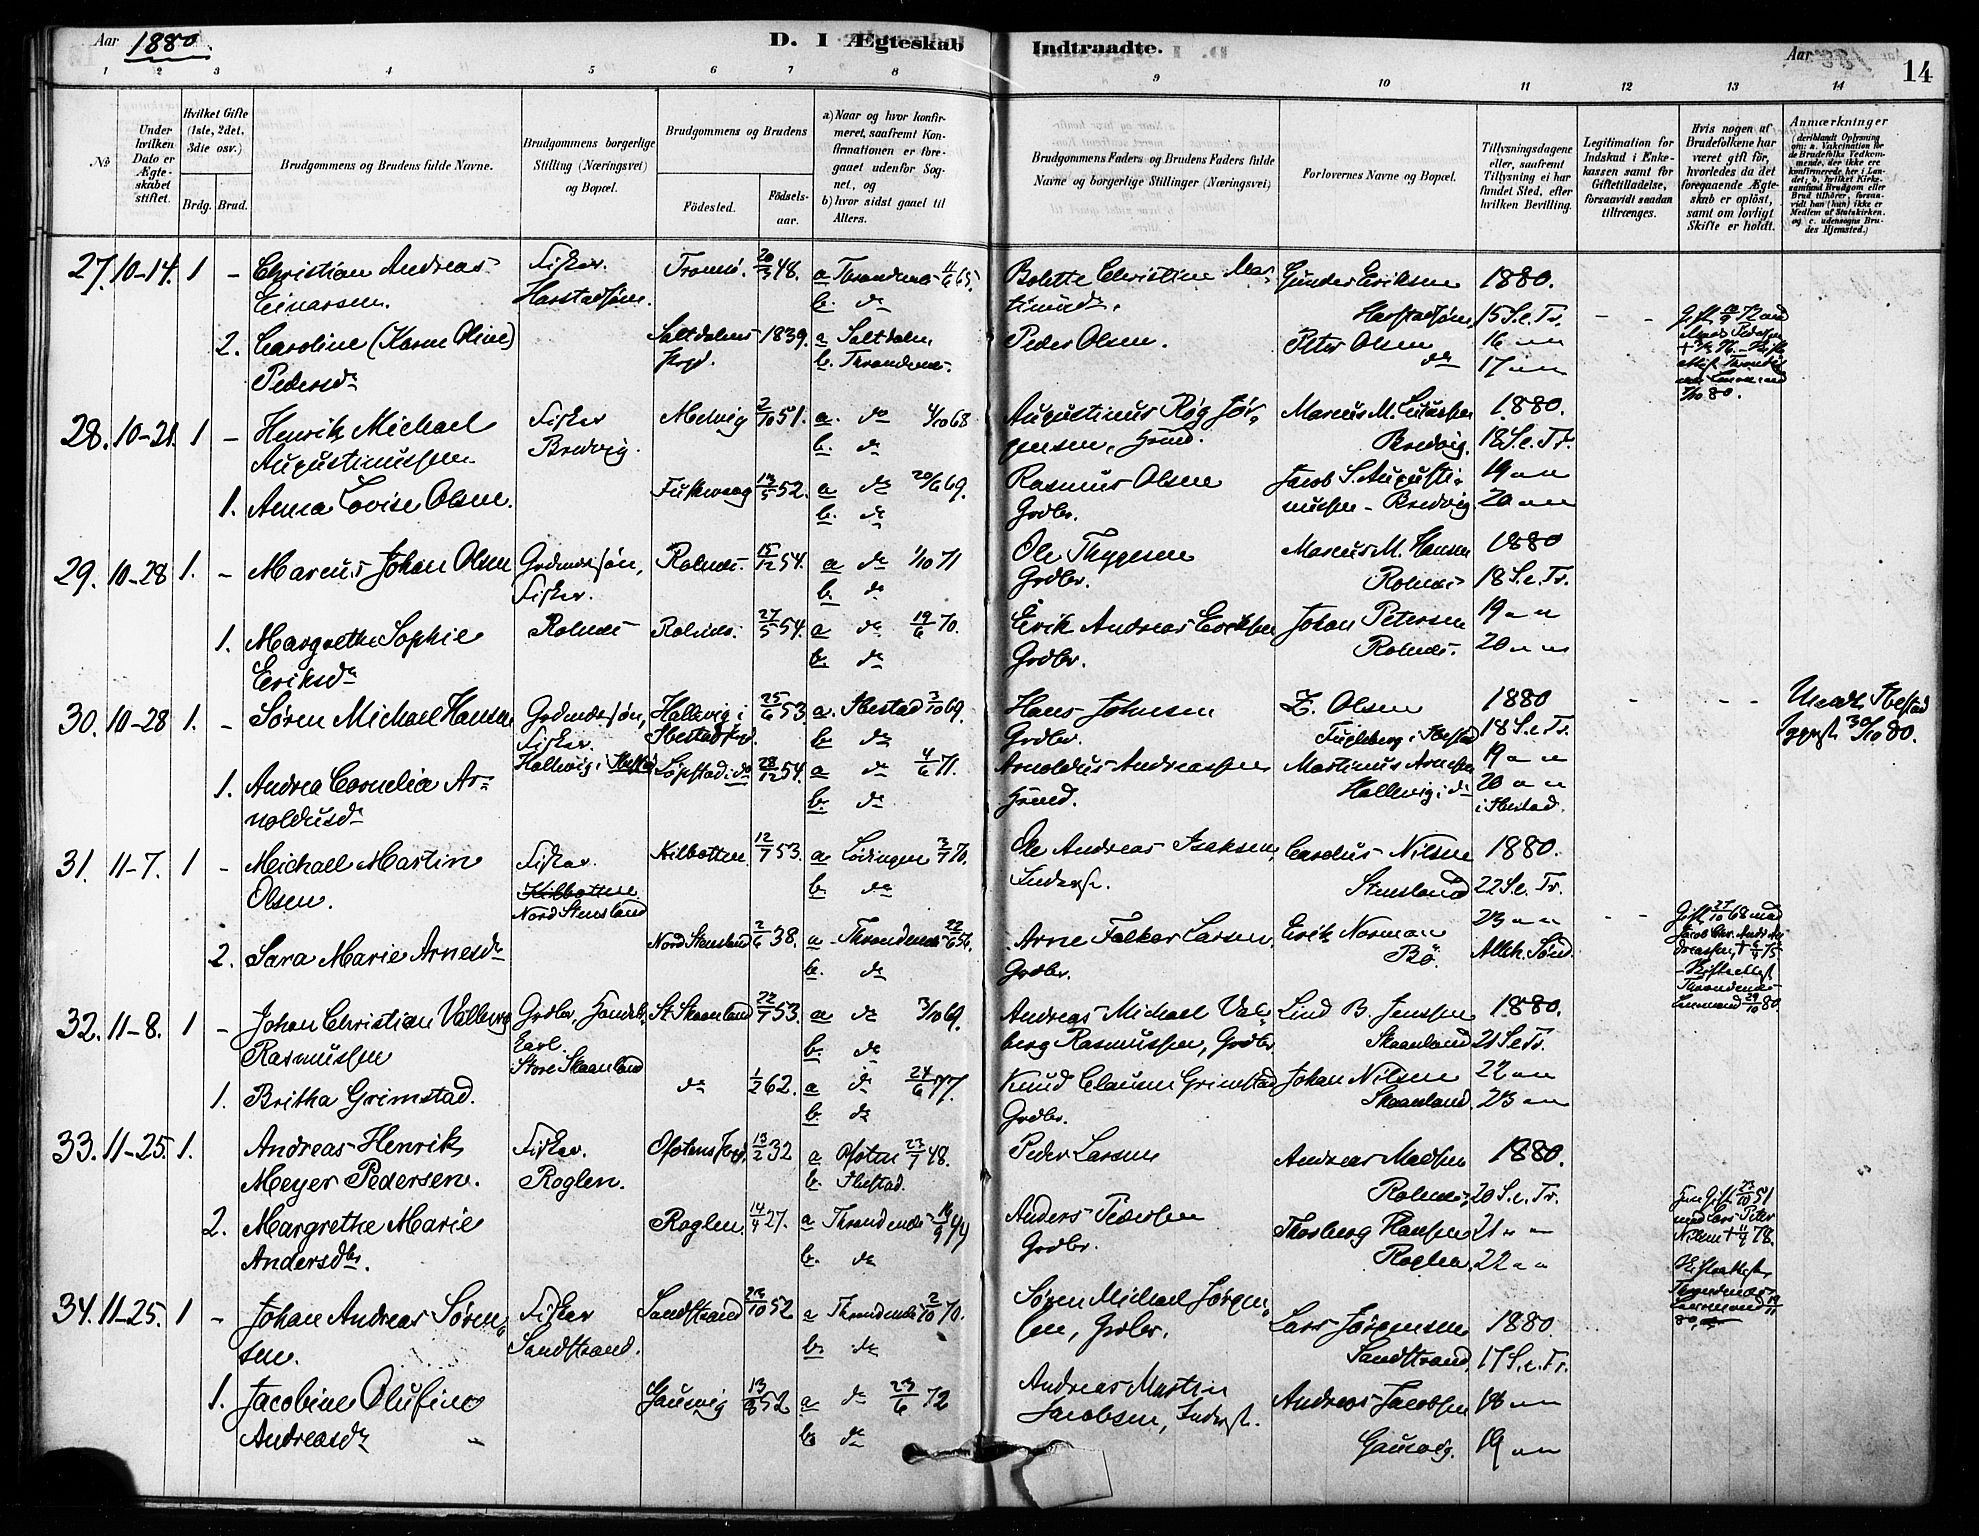 Aar 1880.
D. I Ægteskab
Indtraadte.
Aar
14
1 2 3 4 5 6 7 8 9 10 11 12 13 14
No
Under hvilken Dato er Ægteskabet stiftet.
Hvilket Gifte (1ste, 2det, 3die osv.)
Brdg. Brud.
Brudgommens og Brudens fulde Navne.
Brudgommens borgerlige Stilling (Næringsvei) og Bopæl.
Brudgommens og Brudens
Fødested.
Fødselsaar.
a) Naar og hvor konfirmeret, saafremt Konfirmationen er foregaaet udenfor Sognet, og
b) hvor sidst gaaet til Alters.
Brudgommens Faders og Brudens Faders fulde Navne og borgerlige Stillinger (Næringsvei)
Forlovernes Navne og Bopæl.
Tillysningsdagene eller, saafremt Tillysning ei har fundet Sted, efter hvilken Bevilling.
Legitimation for Indskud i Enkekassen samt for Giftetilladelse, forsaavidt saadan tiltrænges.
Hvis nogen af Brudefolkene har været gift før, hvorledes da det foregaaende Ægteskab er opløst, samt om lovligt Skifte er holdt.
Anmærkninger
(deriblandt Oplysning om: a. Vakcination for de Brudefolks Vedkommende, der ikke ere konfirmerede her i Landet; b. hvilket Kirkesamfund Brudgom eller Brud tilhører, forsaavidt han (hun) ikke er Medlem af Statskirken, og c. udensogns Brudes Hjemsted.)
27. 10-14. 1 - Christian Andreas Einarsen. Fisker. Harstadsjøen. Tromsø. 20/3 48. a Throndenes 4/6 65. b. do Bolette Christine Martinusdr. Gunder Eriksen Harstadsjøen 1880. 15 S. e. Tr.
2. Caroline (Karen Oline) Pedersdr Saltdalens Prgd. 1839. a Saltdalen b. Throndenes. Peder Olsen. Peter Olsen do 16 " " 17 " "
28. 10-21. 1 - Henrik Michael Augustinussen Fisker Bredvig. Melvig 2/10 51. a. do 4/10 68 b. do Augustinus Røg Jørgensen, Huusd. Marcus M. Bredvig. 1880. 18 S. e. Tr.
1. Anna Lovise Olsen. 13/5 52. a do 20/6 69. b. do Rasmus Olsen Grdbr. Jacob S. Augustinussen - Bredvig. 19 " " 20 " "
29. 10-28 1. - Marcus Johan Olsen Grdmdssøn, Fisker. Rolnes Rolnes. 15/12 54. a do 1/10 71 b. do Ole Thygesen Grdbr. Marcus M. Hansen Rolnes 1880 18 S. e. Tr.
1. Margrethe Sophie Eriksdr Rolnes. 27/5 54. a do 19/6 70. b. do Erik Andreas Eriksen Grdbr. Johan Petersen Rolnes. 19 " " 20 " "
30. 10-28 1. - Søren Michael Hansen Grdmdssøn, Fisker. Hallevig i Ibestad Hallevig i Ibestad Prgd. 25/6 53 a. Ibestad 3/10 69. b. do Hans Johnsen Grdbr. Z. Olsen Fugleberg i Ibestad 1880 18 S. e. Tr. - - - Ibestad 30/10 80.
1. Andrea Cornelia Arnoldusdr Løpstad i do 28/12 54. a do 4/6 71. b. do Arnoldus Andreassen Huusd. Martinus Arnesen Hallevig i do 19 " " 20 " " i Ibestad.
31. 11-7. 1 - Michael Martin Olsen. Fisker. Kilbotten Nord Stensland Kilbotten 12/7 53. a Lødingen 3/7 70. b. do Ole Andreas Isaksen, Inderst. Carolus Nilsen Stensland 1880. 22 S. e. Tr.
2. Sara Marie Arnesdr Nord Stensland 2/6 38. a Throndenes 22/6 56. b. do Arne Falker Larsen Grdbr. Erik Norman Bø. 23 " " Alleh. Sønd. - - Gift 27/10 68 med Jacob Chr. Andr. Andreassen, + 6/4 75 - Skifteattest Throndenes Lensmand 29/10 80.
32. 11-8. 1 - Johan Christian Valberg Rasmussen Grdbr, Store Skaanland St. Skaanland 22/7 53. a do 3/10 69. b. do Andreas Michael Valberg Rasmussen, Grdbr. Lind B. Jenssen Skaanland 1880. 21 S. e. Tr.
1. Britha Grimstad. do 1/2 62. a do 24/6 77. b. do Knud Clausen Grimstad Grdbr. Johan Nilsen Skaanland. 22 " " 23 " "
33. 11-25. 1. Andreas Henrik Meyer Pedersen. Fisker. Roglen. Ofotens Prgd. 13/2 32 a Ofoten 23/7 48. b. Ibestad. Peder Larsen Andreas Madsen Rolnes. 1880. 20 S. e. Tr.
2. Margrethe Marie Andersdtr. Roglen 14/4 27. a Throndenes 19/9 44 b. do Anders Pedersen Grdbr. Thorberg Hansen Roglen. 21 " " 22 " " Gift 23/10 51 med Lars Peter Nilsen + 11/4 78. Skifteattest Throndenes Lensmand 80.
34. 11-25. 1 - Johan Andreas Sørensen. Fisker Sandstrand. Sandstrand 23/10 52 a Throndenes 2/10 70. b. do Søren Michael Jørgensen, Grdbr. Lars Jørgensen Sandstrand. 1880. 17 S. e. Tr.
1. Jacobine Olufine Andreasdr Gausvig 13/8 52 a do 23/6 72 b do Andreas Martin Jacobsen, Inderst. Andreas Jacobsen Gausvig. 18 " " 19 " "